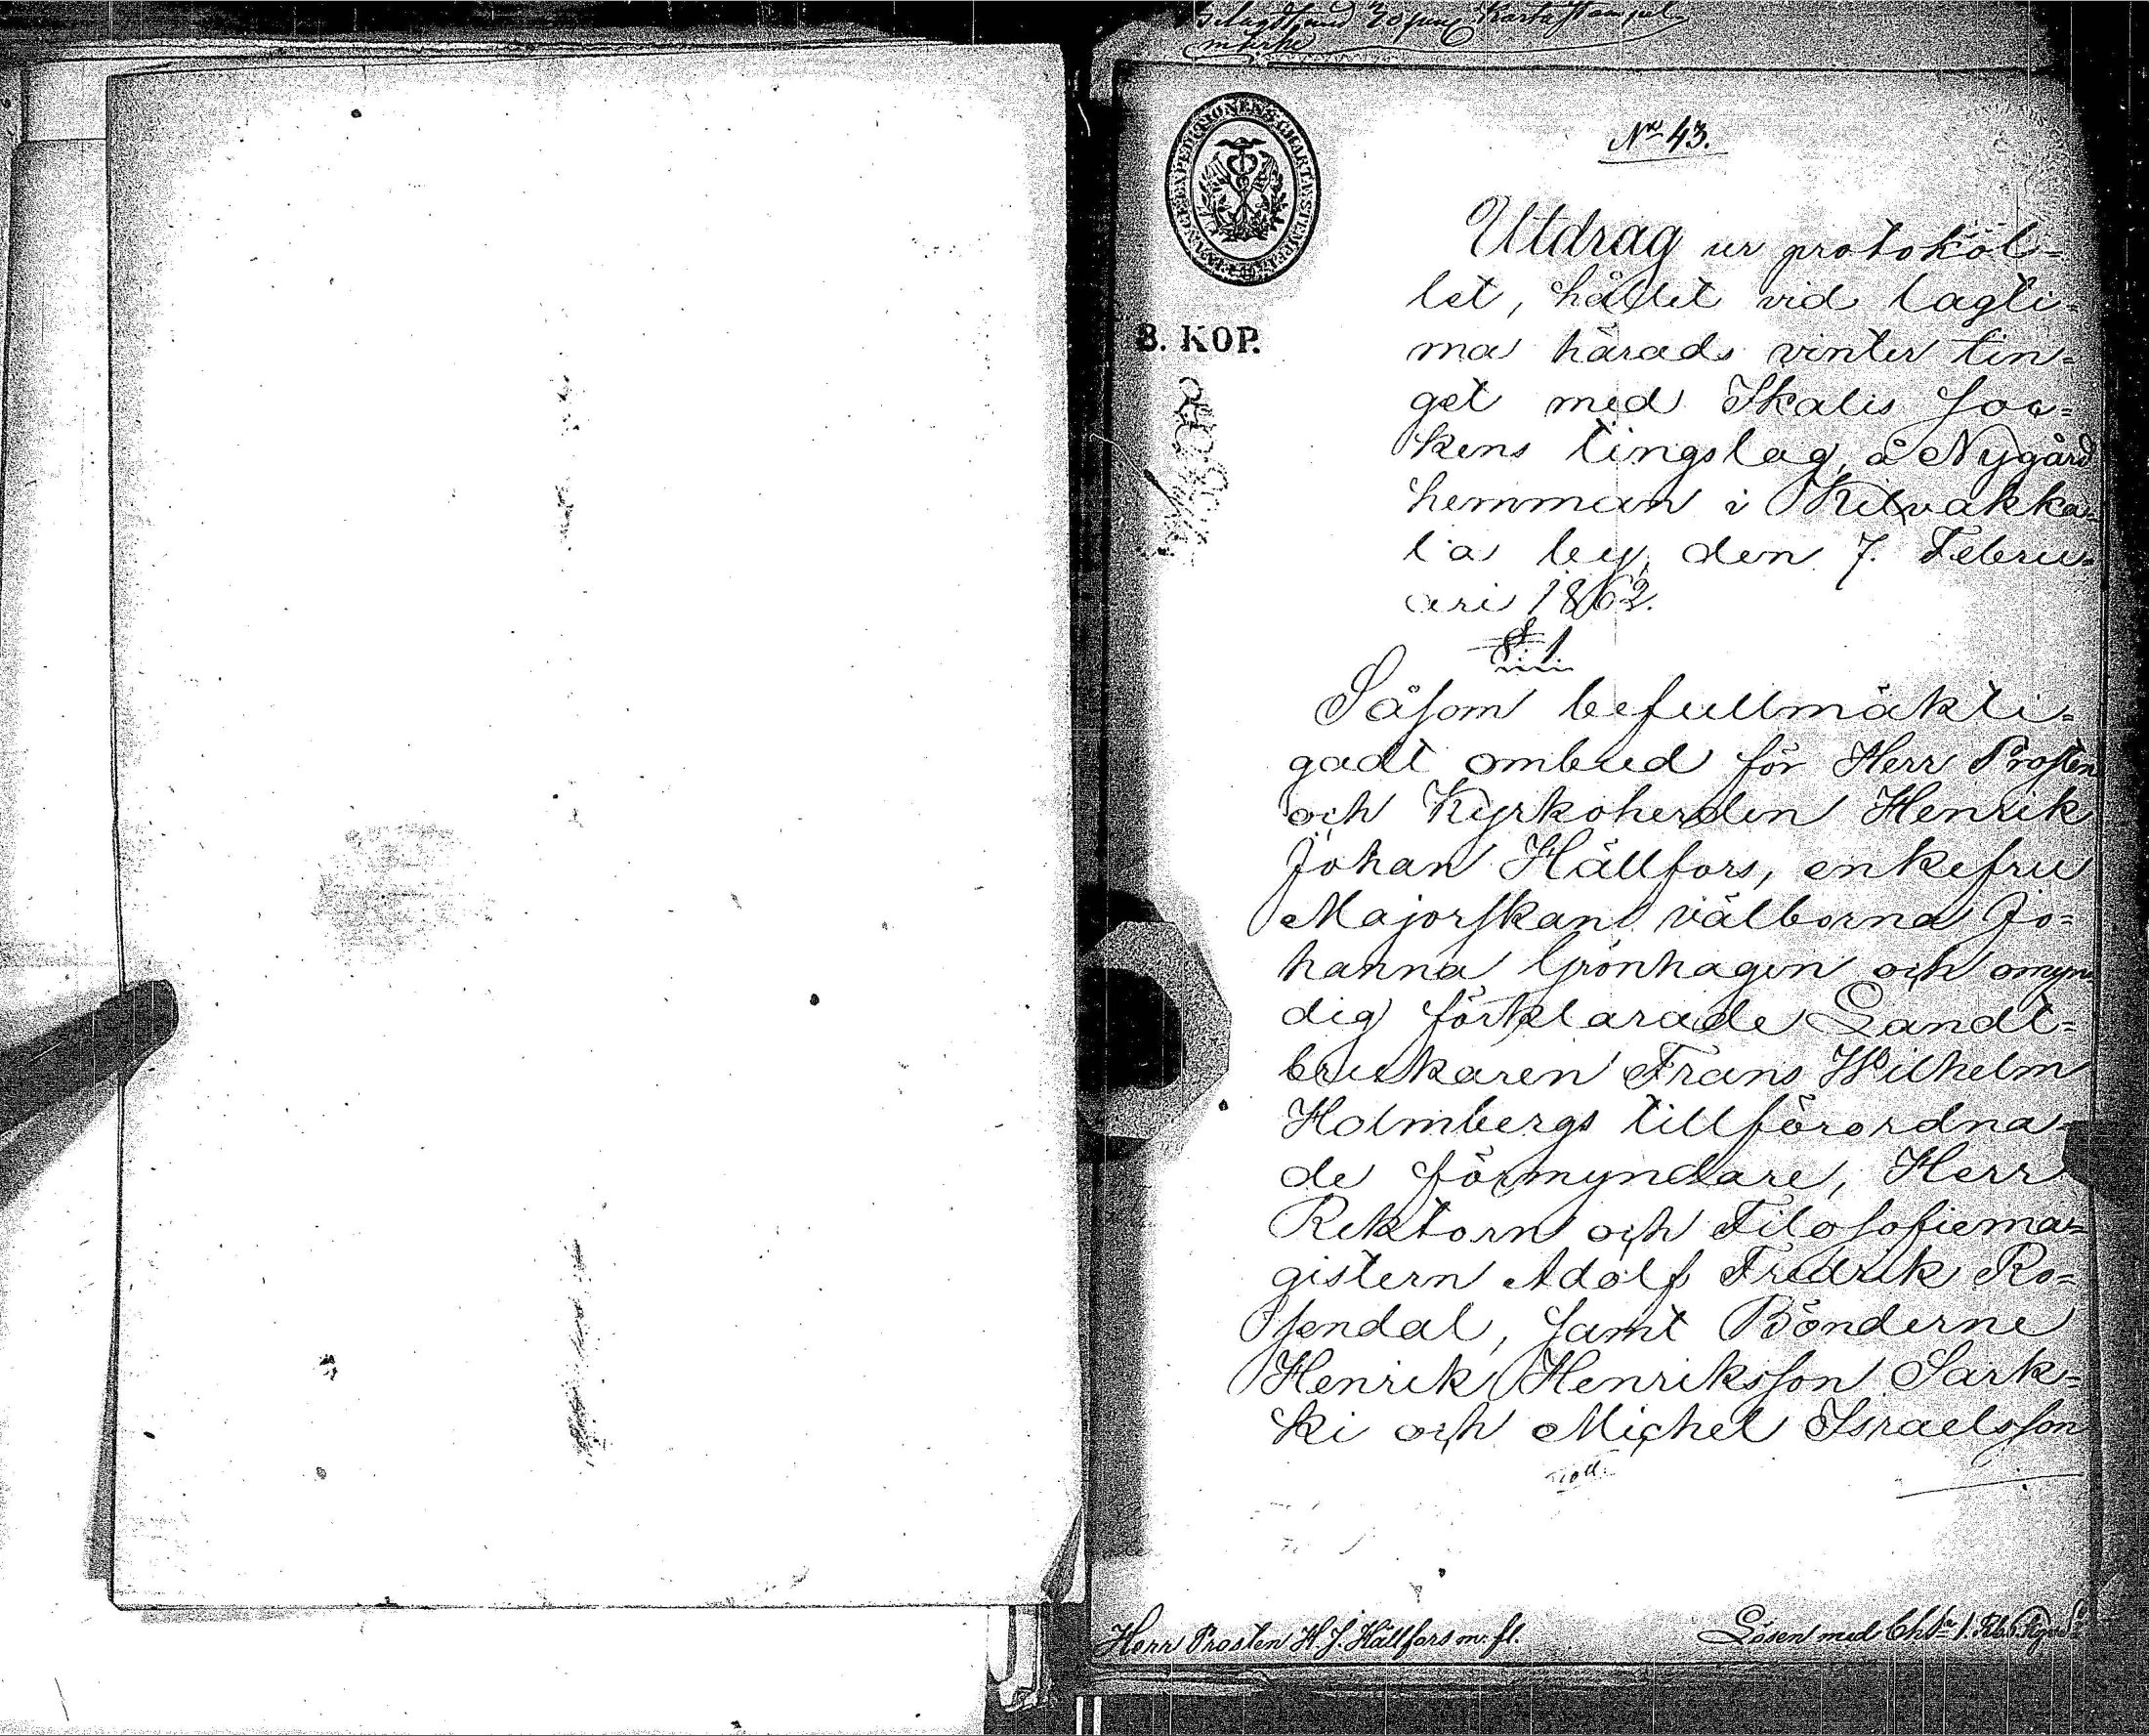 Belagdt med 20 peni Karta stempel
märke
No 43.
Utdrag ur protokol-
let, hållet vid lagti-
ma härads vinter tin-
get med Ikalis soc-
kens tingslag, å Nygård
hemman i Kilvakka-
la by, den 7. Febru-
ari 1862.
8. KOP.
§ 1
Såsom befullmäkti-
gadt ombud för Herr Prosten
och Kyrkoherden Henrik
Johan Hällfors, enkefru
Majorskan välborna Jo-
hanna Grönhagen och omyn-
dig förklarade Landt-
brukaren Frans Wilhelm
Holmbergs tillförordna-
de förmyndare, Herr
Rektorn och Filosofiema-
gistern Adolf Fredrik Ro-
sendal, samt Bönderne
Henrik Henriksson Sark-
ki och Michel Israelsson
Herr Prosten H. J. Hällfors m. fl.
Lösen med Ch